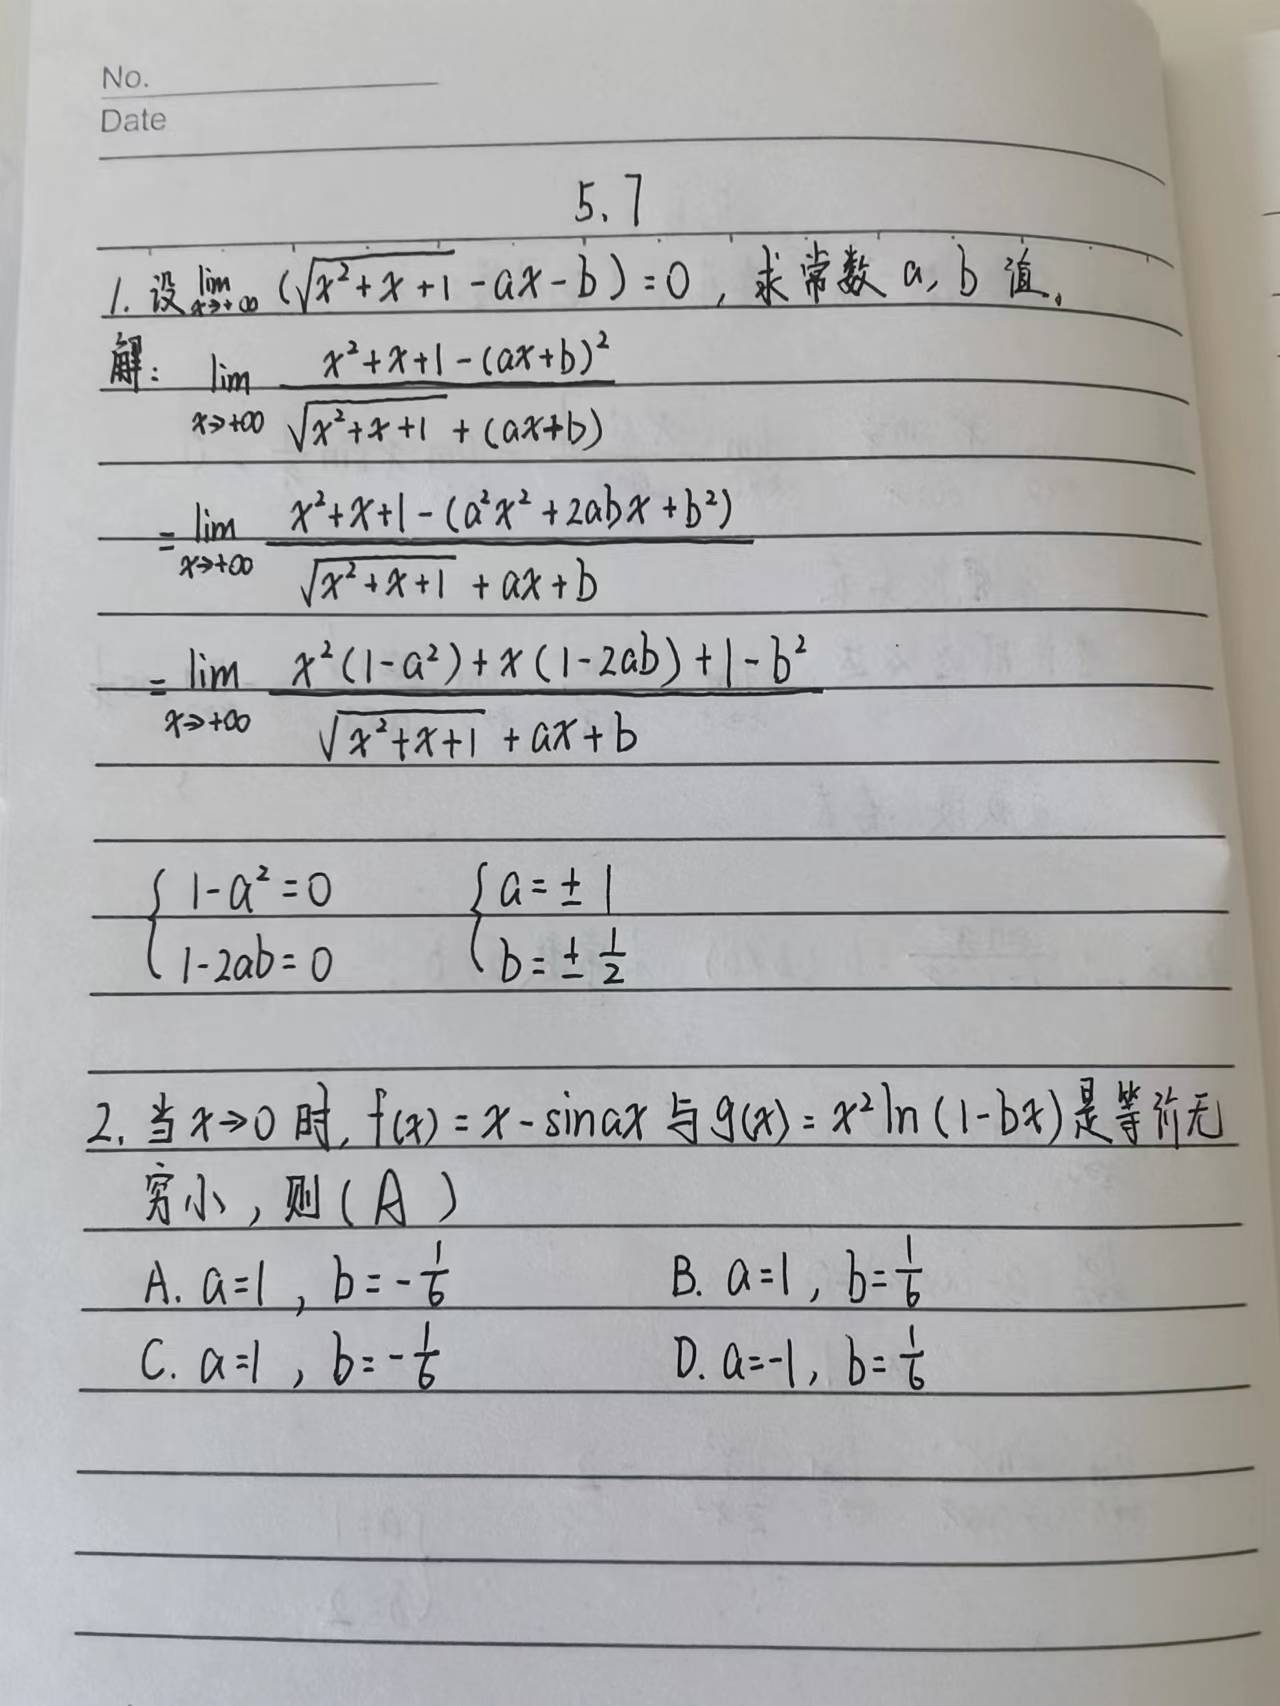 No.
Date
5.7
1. 设 lim x→+∞ (√(x²+x+1) - ax - b) = 0, 求常数 a, b 值。
解: lim x→+∞ (x²+x+1-(ax+b)²)/(√(x²+x+1) + (ax+b))
= lim x→+∞ (x²+x+1-(a²x²+2abx+b²))/(√(x²+x+1) + ax+b)
= lim x→+∞ (x²(1-a²)+x(1-2ab)+1-b²)/(√(x²+x+1) + ax+b)
{ 1-a²=0 { a=±1
1-2ab=0 b=±1/2
2. 当 x→0 时, f(x)=x-sinax 与 g(x)=x²ln(1-bx) 是等价无
穷小, 则 (A)
A. a=1, b=-1/6 B. a=1, b=1/6
C. a=1, b=-1/6 D. a=-1, b=1/6